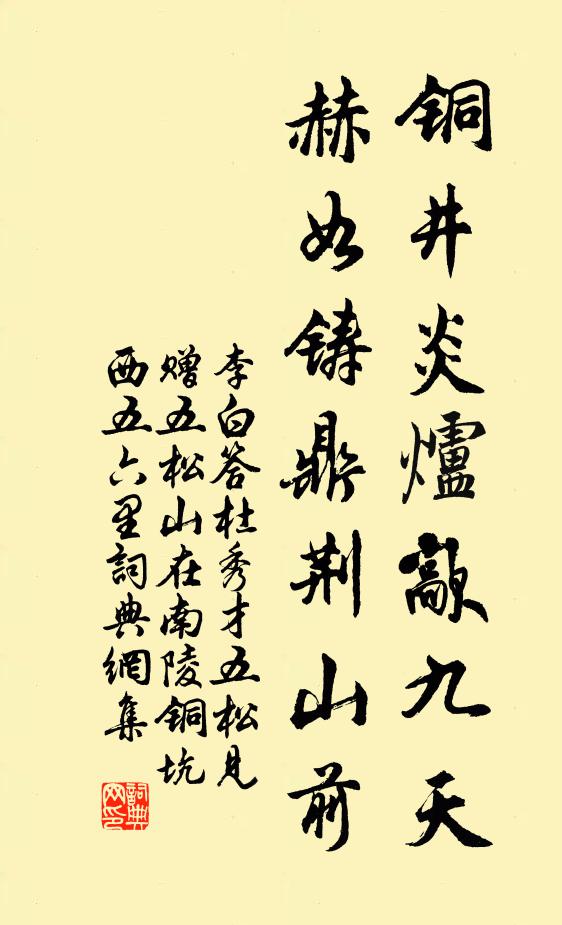 铜井炎爐歊九天
赫如铸鼎荆山前
李白答杜秀才五松見
赠五松山在南陵铜坑
西五六里詞典網集
詞典
网印